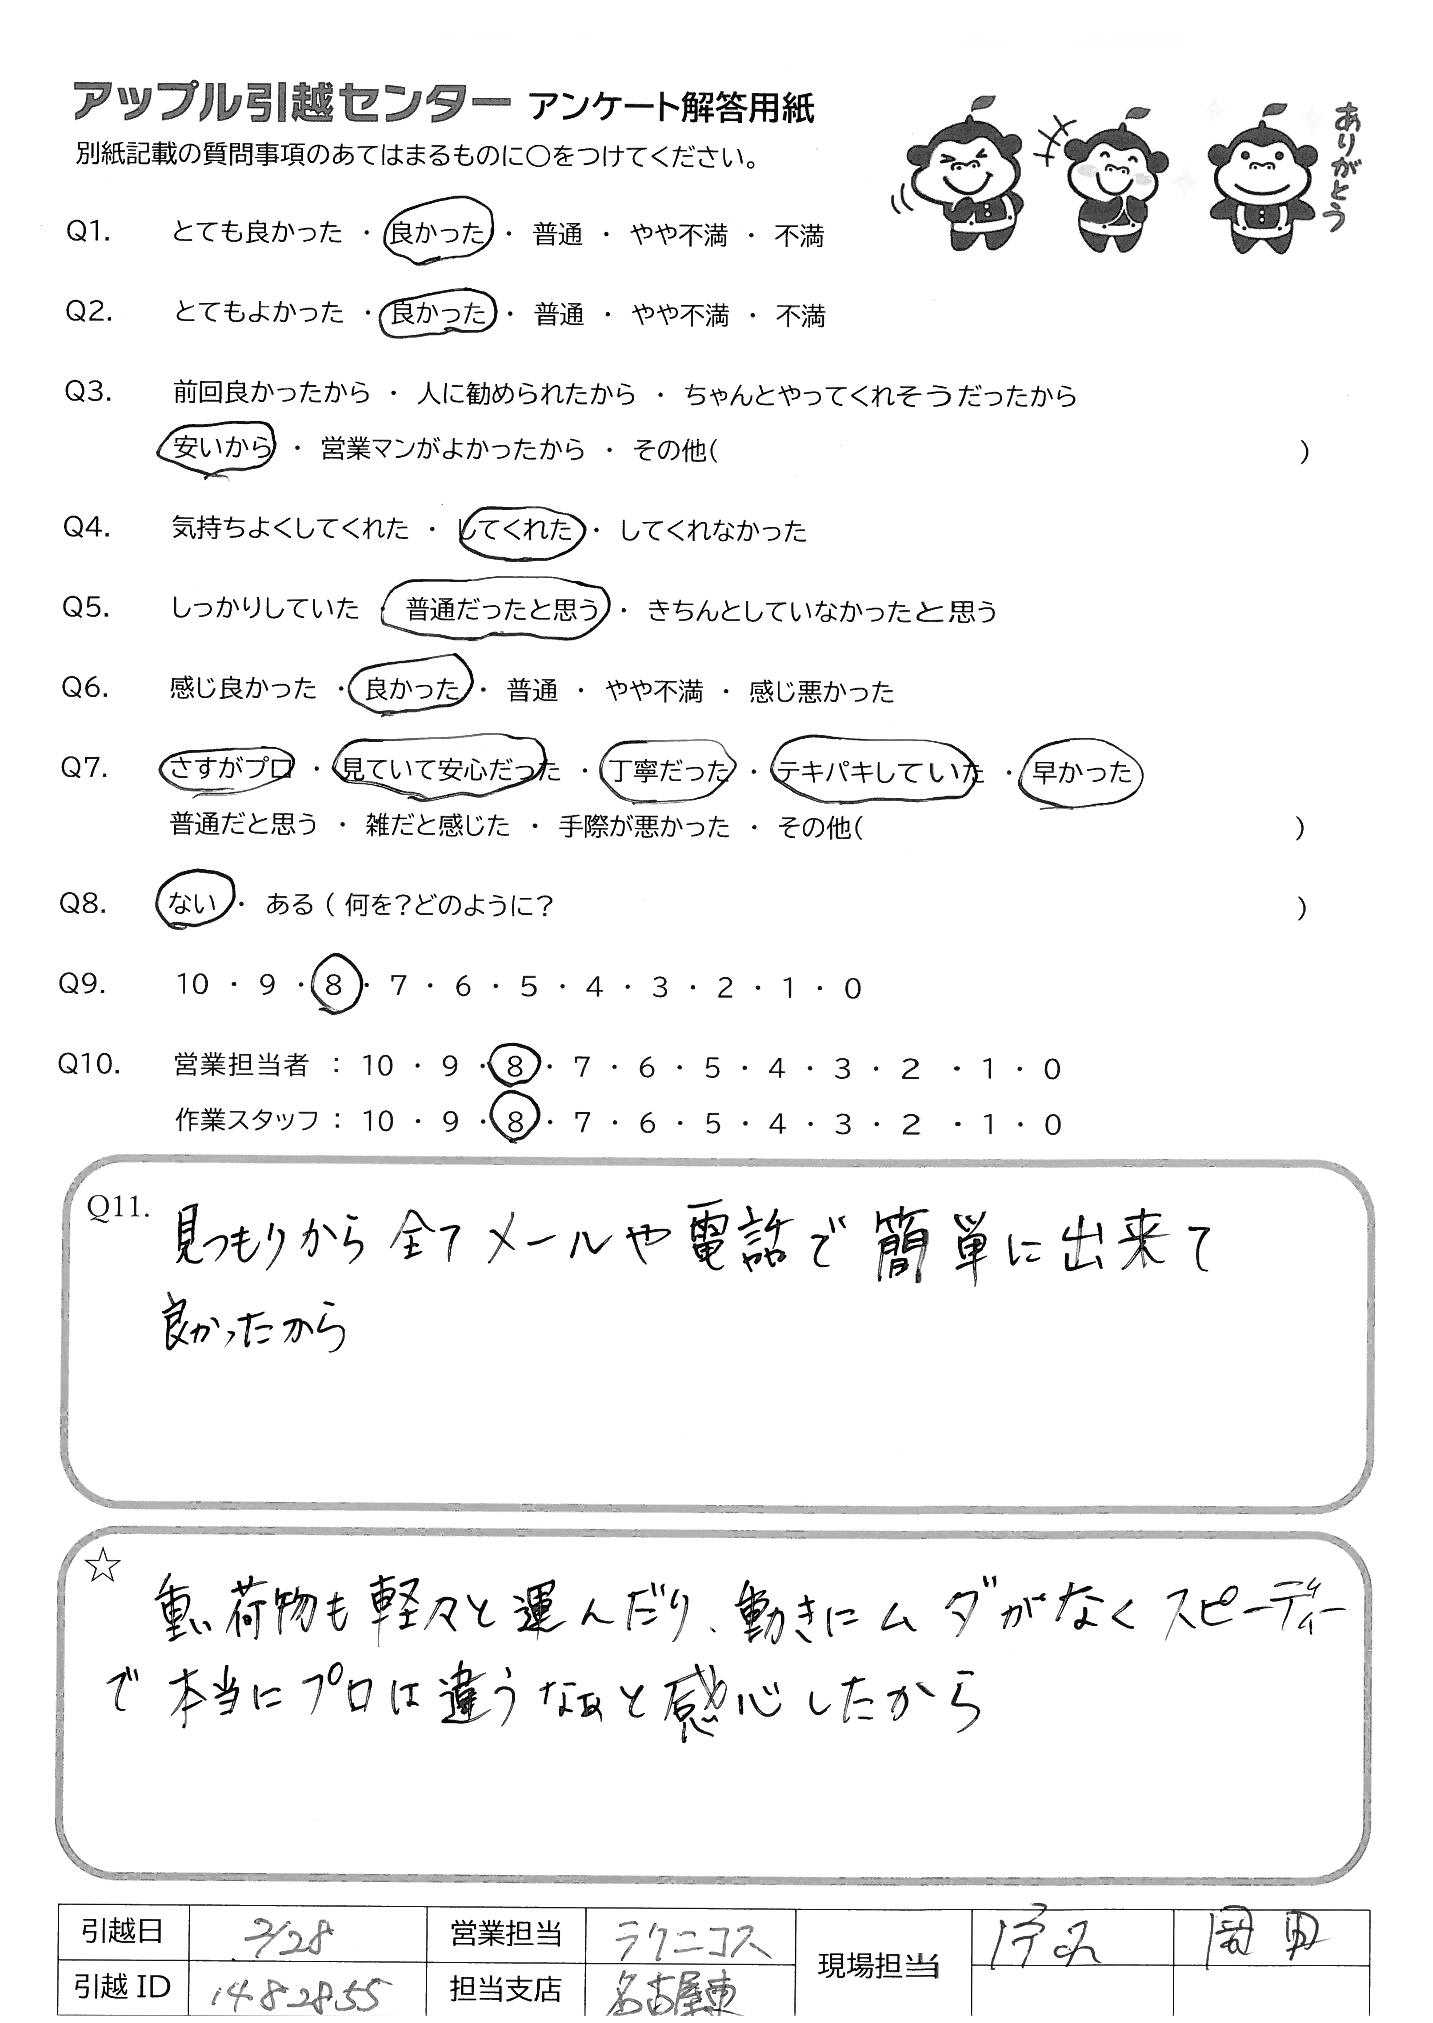 アップル引越センター アンケート解答用紙
別紙記載の質問事項のあてはまるものに○をつけてください。
ありがとう
Q1. とても良かった ・ 良かった ・ 普通 ・ やや不満 ・ 不満
Q2. とてもよかった ・ 良かった ・ 普通 ・ やや不満 ・ 不満
Q3. 前回良かったから ・ 人に勧められたから ・ ちゃんとやってくれそうだったから
安いから ・ 営業マンがよかったから ・ その他( )
Q4. 気持ちよくしてくれた ・ してくれた ・ してくれなかった
Q5. しっかりしていた ・ 普通だったと思う ・ きちんとしていなかったと思う
Q6. 感じ良かった ・ 良かった ・ 普通 ・ やや不満 ・ 感じ悪かった
Q7. さすがプロ ・ 見ていて安心だった ・ 丁寧だった ・ テキパキしていた ・ 早かった
普通だと思う ・ 雑だと感じた ・ 手際が悪かった ・ その他( )
Q8. ない ・ ある ( 何を?どのように? )
Q9. 10 ・ 9 ・ 8 ・ 7 ・ 6 ・ 5 ・ 4 ・ 3 ・ 2 ・ 1 ・ 0
Q10. 営業担当者 : 10 ・ 9 ・ 8 ・ 7 ・ 6 ・ 5 ・ 4 ・ 3 ・ 2 ・ 1 ・ 0
作業スタッフ : 10 ・ 9 ・ 8 ・ 7 ・ 6 ・ 5 ・ 4 ・ 3 ・ 2 ・ 1 ・ 0
Q11. 見つもりから全てメールや電話で簡単に出来て
良かったから
☆ 重い荷物も軽々と運んだり、動きにムダがなくスピーディー
で本当にプロは違うなぁと感心したから
引越日 2/28 営業担当 ラクニコス 現場担当
引越 ID 1482855 担当支店 名古屋東